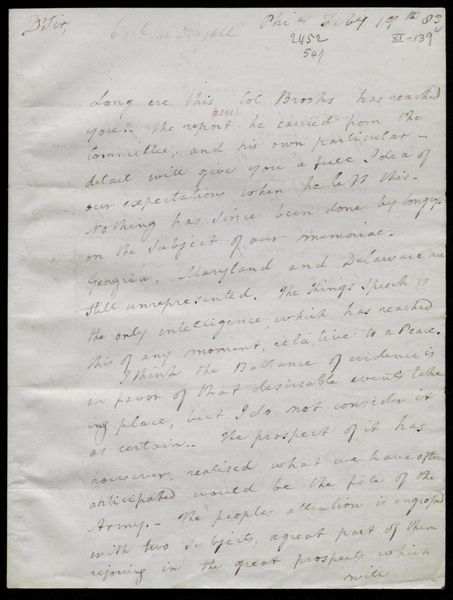 D Sir,
Phia Feby 19th 83
Genl McDougall
2452
541
XI-139
Long ere this Col Brooks has reached
you.- The report he carried from the
Committee, and his own particular
detail will give you a full Idea of
our expectations when he left this-
Nothing has since been done by Congress
on the subject of our memorial-
Georgia, Maryland and Delaware are
still unrepresented. The Kings Speech is
the only intelligence, which has reached
this of any moment, relative to a Peace.
I think the Ballance of evidence is
in favor of that desirable events take
ing place, but I do not consider it
as certain.- The prospect of it has
however, realised what we have often
anticipated would be the fate of the
Army.- The peoples attention is engrossed
with two subjects, a great part of them
rejoicing in the great prospects which
will